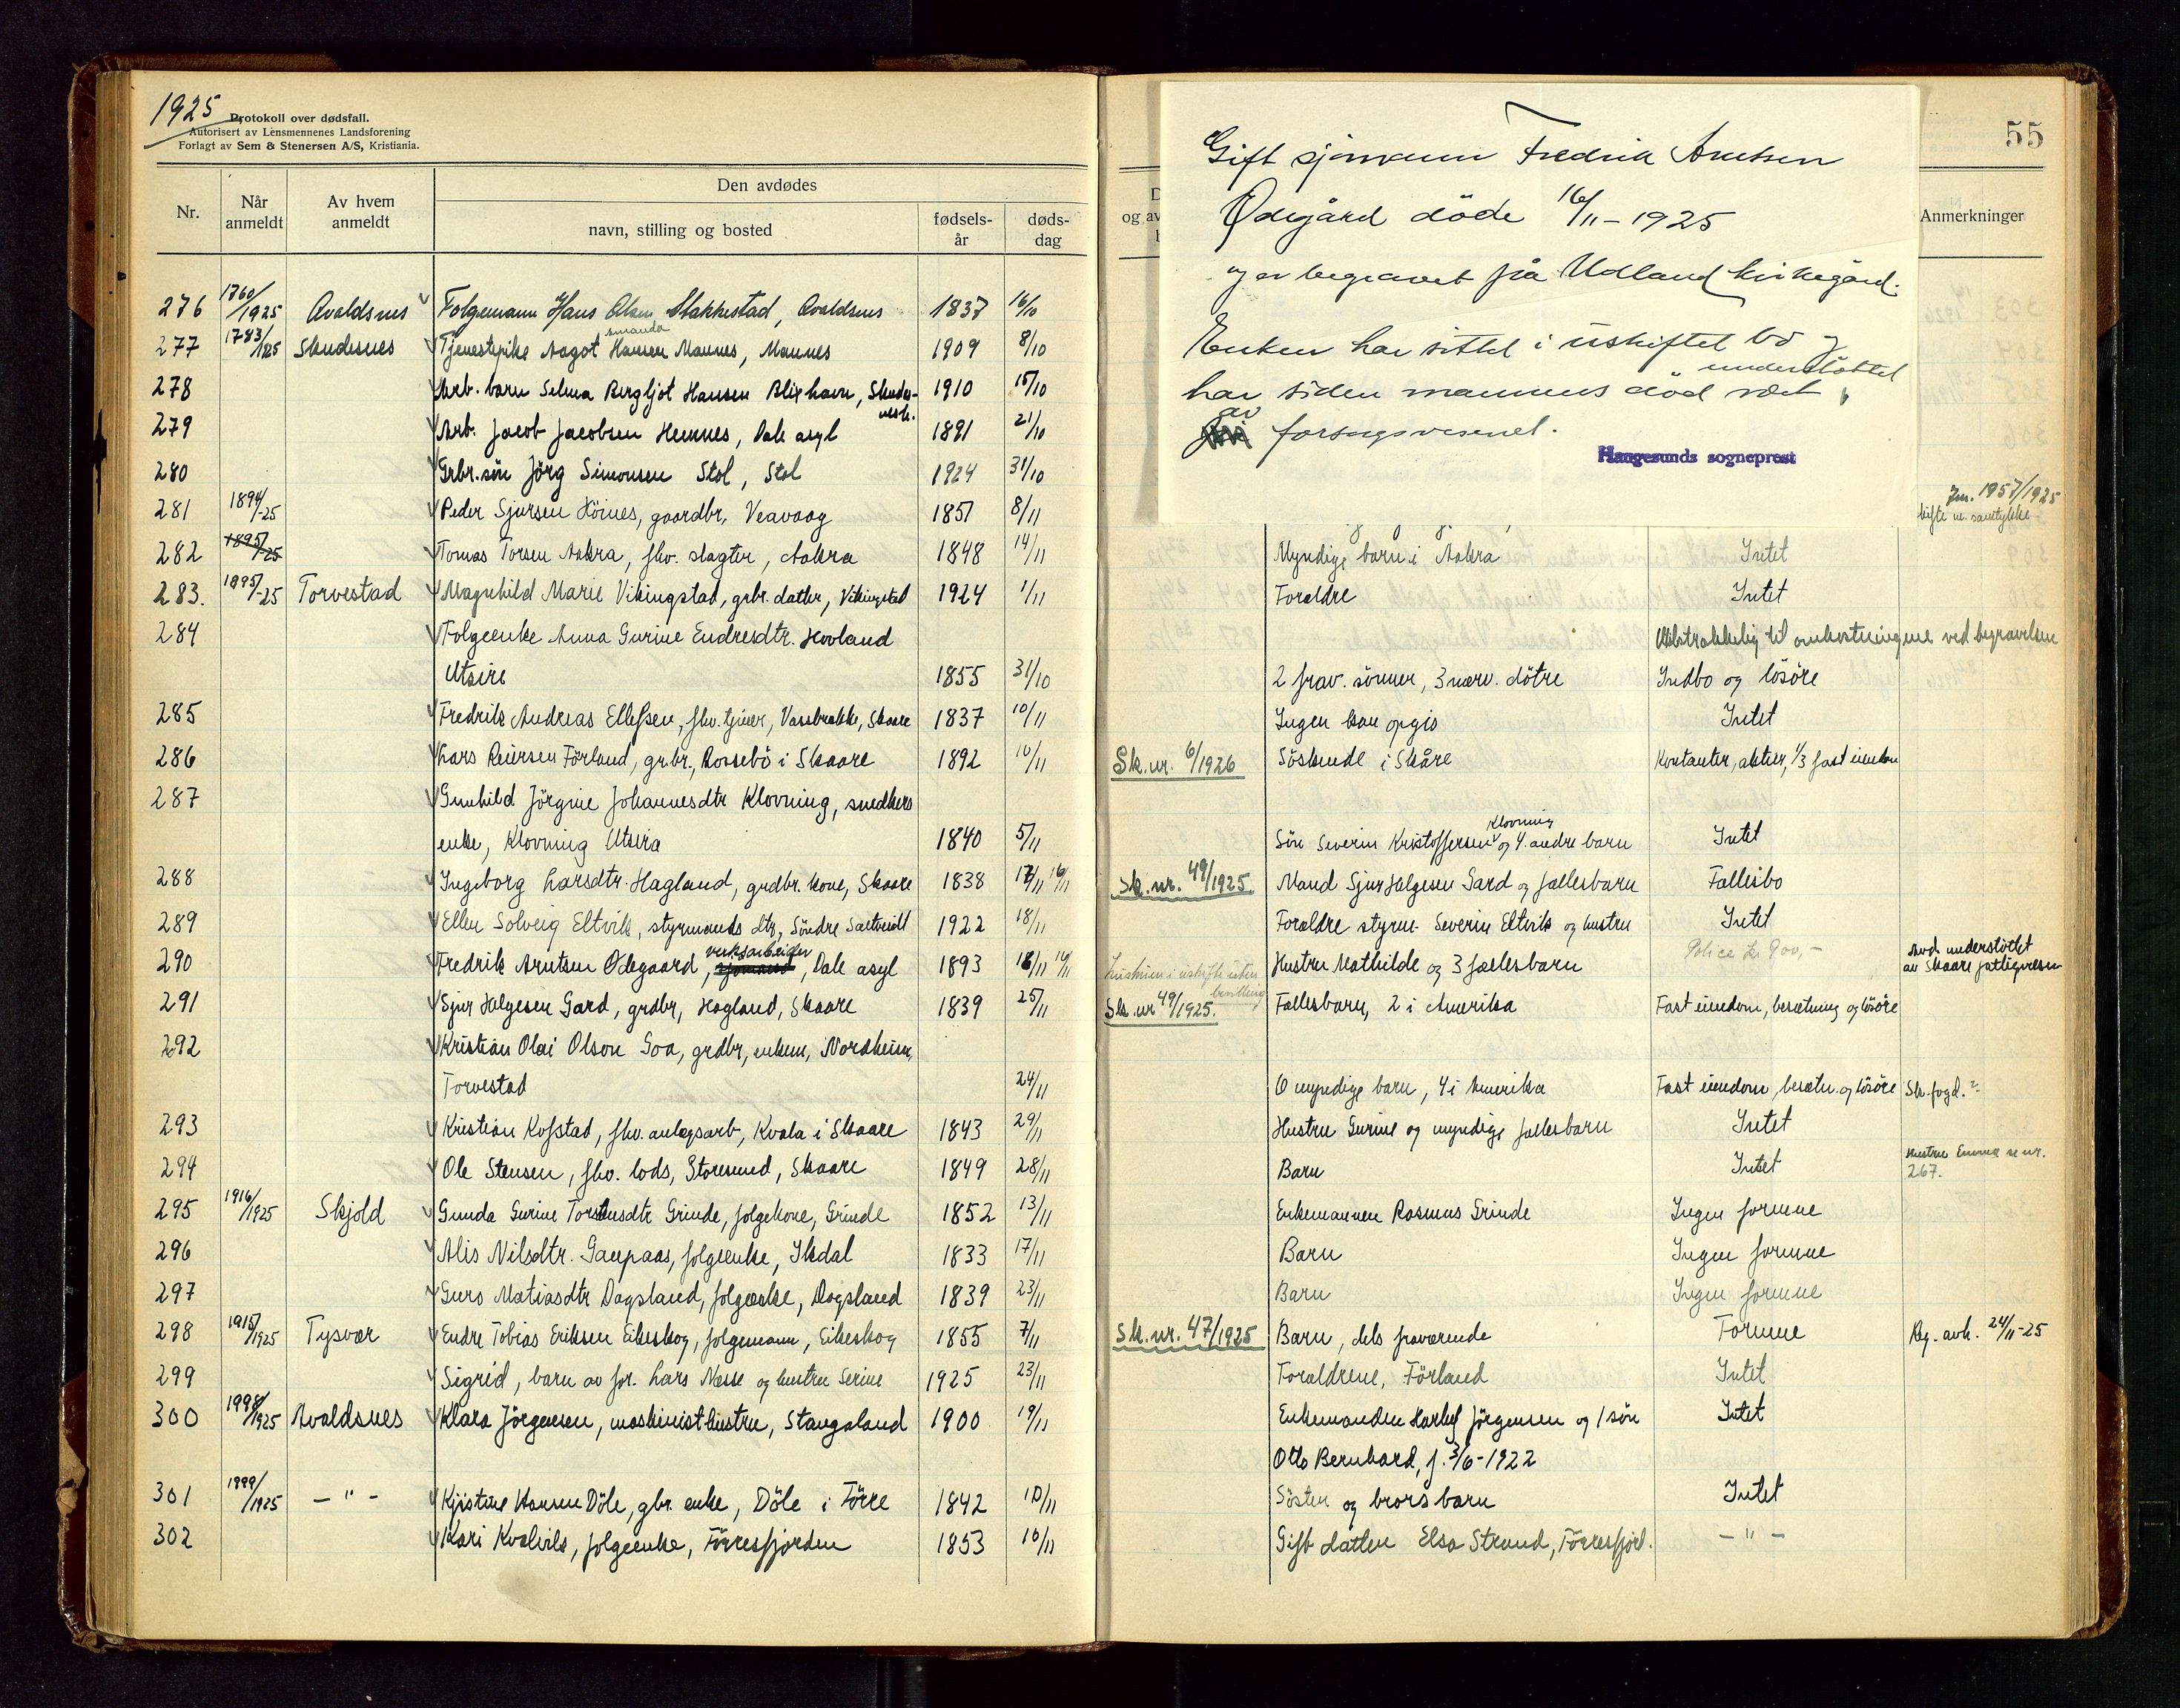 1925
Protokoll over dødsfall.
Autorisert av Lensmennenes Landsforening
Forlagt av Sem & Stenersen A/S, Kristiania.
Nr.
Når anmeldt
Av hvem anmeldt
Den avdødes
navn, stilling og bosted
fødsels-år
døds-dag
276 1760/1925 Avaldsnes Folgemann Hans Olsen Stakkestad, Avaldsnes 1837 16/10
277 1783/1925 Skudesnes Tjenestepike Aagot Hansen Mannes, Mannes 1909 8/10
278 Arb. barn Selma Bergljot Hansen Blixhavn, Skudes- 1910 15/10
279 Arb. Jacob Jacobsen Hemnes, Dale asyl 1891 21/10
280 Grbr. søn Jörg Simonsen Stol, Stol 1924 31/10
281 1894/-25 Peder Sjursen Höines, gaardbr, Veavaag 1851 8/11
282 1895/-25 Tomas Torsen Aakra, fhv. slagter, Aakra 1848 14/11
283. 1895/-25 Torvestad Magnhild Marie Vikingstad, grbr. datter, Vikingstad 1924 1/11
284 Folgeenke Anna Gurine Endresdtr. Hovland
Utsire 1855 31/10
285 Fredrik Andreas Ellefsen, fhv. tjener, Vassbrakke, Skaare 1837 10/11
286 Lars Reiersen Förland, grbr., Rossebö i Skaare 1892 10/11
287 Gunhild Jörgine Johannesdtr Klovning, snedkers
enke, Klovning Utsira 1840 5/11
288 Ingeborg Larsdtr. Hagland, grdbr. kone, Skaare 1838 17/11 16/11
289 Ellen Solveig Eltvik, styrmands dtr, Söndre Saltveidt 1922 18/11
290 Fredrik Arntsen Ødegaard, verksarbeider, Dale asyl 1893 18/11 16/11
291 Sjur Helgesen Gard, grdbr, Hagland, Skaare 1839 25/11
292 Kristian Olai Olson Goa, grdbr, enkem, Nordheim,
Torvestad 24/11
293 Kristian Kofstad, fhv. anlegsarb, Kvala i Skaare 1843 29/11
294 Ole Stensen, fhv. lods, Storesund, Skaare 1849 28/11
295 1916/1925 Skjold Gunda Gurine Torstensdtr Grinde, folgekone, Grinde 1852 13/11
296 Alis Nilsdtr. Gaupaas, folgeenke, Skdal 1833 17/11
297 Guro Matiasdtr Dagsland, folgeenke, Dagsland 1839 23/11
298 1915/1925 Tysvær Endre Tobias Eriksen Eikeskog, folgemann, Eikeskog 1855 7/11
299 Sigrid, barn av for. Lars Nesse og hustru Serine 1925 23/11
300 1998/1925 Avaldsnes Klara Jörgensen, maskinisthustru, Stangaland 1900 19/11
301 1999/1925 — " — Kjistine Hansen Döle, gbr. enke, Döle i Förre 1842 10/11
302 Kari Kvalvik, folgeenke, Förresfjorden 1853 10/11
55
Anmerkninger
Gift sjömann Fredrik Arntsen
Ødegård döde 16/11-1925
og er begravet på Udland kirkegård.
Enken har sittet i uskiftet bo og
har siden mannens död vært understöttet
av forsorgsvesenet.
Haugesunds sogneprest
Jnr. 1957/1925
skifte m. samtykke
Myndige barn i Aakra Intet
Foreldre Intet
Utilstrækkelig til omkostningene ved begravelsen
2 frav. sönner, 3 nærv. dötre Indbo og lösöre
Ingen kan opgis Intet
Sk. nr. 6/1926 Söskende i Skåre Kontanter, aktier, 1/3 fast eiendom
Sön Severin Kristoffersen Klovning og 4 andre barn Intet
Sk. nr. 49/1925 Mand Sjur Helgesen Gard og fællesbarn Fællesbo
Foreldre styrm. Severin Eltvik og hustru Intet
Hustru i uskifte uten bevilling Hustru Mathilde og 3 fællesbarn Police kr 900,- Avd. understöttet av Skaare fattigvesen
Sk. nr 49/1925. Fellesbarn, 2 i Amerika Fast eiendom, besetning og lösöre
6 myndige barn, 4 i Amerika Fast eiendom, besetn. og lösöre Sk. fogd.
Hustru Gurine og myndige fællesbarn Intet
Barn Intet Hustru Emma se nr. 267.
Enkemannen Rasmus Grinde Ingen formue
Barn Ingen formue
Barn Ingen formue
Sk. nr. 47/1925 Barn, dels fraværende Formue Reg. avh. 24/11-25
Foreldrene, Förland Intet
Enkemanden Harlef Jörgensen og 1 sön Intet
Otto Bernhard, f. 3/6-1922
Söster og brors barn Intet
Gift datter Elsa Strand, Förresfjord. — " —